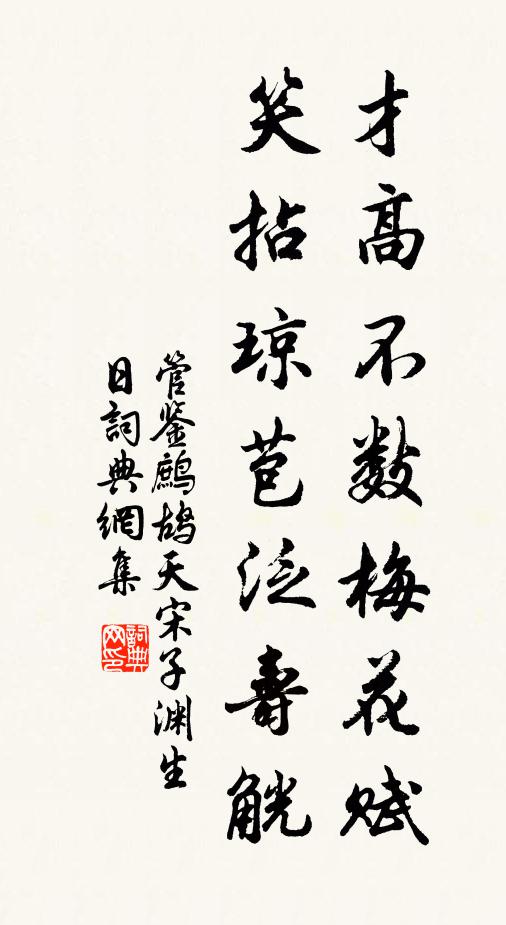 才高不数梅花赋
笑拈琼苞泛寿觥
管鉴鹧鸪天宋子渊生
日詞典網集
詞典
网印